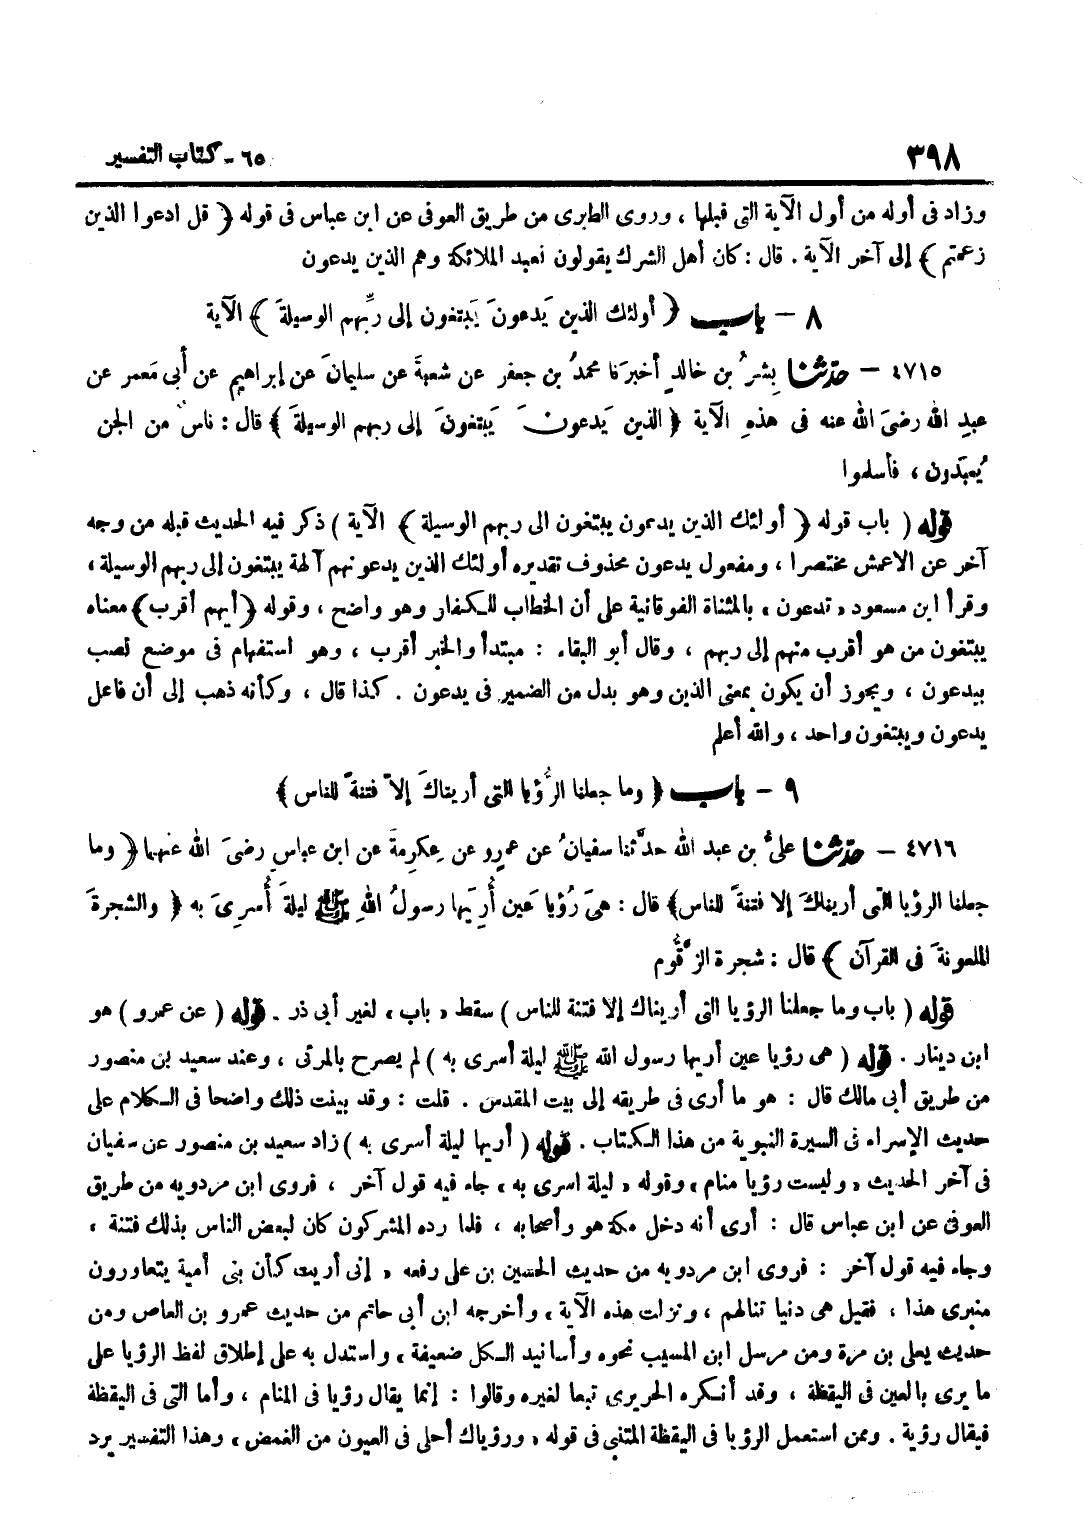 ٣٩٨
٦٥ - كتاب التفسير
وزاد فى أوله من أول الآية التى قبلها ، وروى الطبرى من طريق العوفى عن ابن عباس فى قوله ﴿ قل ادعوا الذين
زعمتم ﴾ إلى آخر الآية . قال : كان أهل الشرك يقولون نعبد الملائكة وهم الذين يدعون
٨ - باب ﴿ أولئك الذين يَدعونَ يَبتغون إلى ربِّهم الوسيلةَ ﴾ الآية
٤٧١٥ - حدّثنا بِشرُ بن خالدٍ أخبرَنا محمدُ بن جعفر عن شعبةَ عن سليمانَ عن إبراهيم عن أبى مَعمر عن
عبدِ الله رضىَ الله عنه فى هذهِ الآية ﴿ الذين يَدعونَ يَبتغونَ إلى ربهم الوسيلةَ ﴾ قال : ناسٌ من الجن
يُعبَدون ، فأسلموا
قوله ( باب قوله ﴿ أولئك الذين يدعون يبتغون الى ربهم الوسيلة ﴾ الآية ) ذكر فيه الحديث قبله من وجه
آخر عن الاعمش مختصرا ، ومفعول يدعون محذوف تقديره أولئك الذين يدعونهم آلهة يبتغون إلى ربهم الوسيلة ،
وقرأ ابن مسعود « تدعون » بالمثناة الفوقانية على أن الخطاب للكفار وهو واضح ، وقوله ﴿ أيهم أقرب ﴾ معناه
يبتغون من هو أقرب منهم إلى ربهم ، وقال أبو البقاء : مبتدأ والخبر أقرب ، وهو استفهام فى موضع نصب
بيدعون ، ويجوز أن يكون بمعنى الذين وهو بدل من الضمير فى يدعون . كذا قال ، وكأنه ذهب إلى أن فاعل
يدعون ويبتغون واحد ، والله أعلم
٩ - باب ﴿ وما جعلنا الرُّؤيا التى أريناكَ إلاّ فتنةً للناس ﴾
٤٧١٦ - حدّثنا علىُّ بن عبد الله حدَّثنا سفيانُ عن عمرٍو عن عِكرِمةَ عن ابن عباسٍ رضىَ الله عنهما ﴿ وما
جعلنا الرؤيا التى أريناكَ إلا فتنةً للناس ﴾ قال : هىَ رُؤيا عَين أُرِيَها رسولُ اللهِ ﷺ ليلةَ أُسرِىَ به ﴿ والشجرةَ
الملعونةَ فى القرآن ﴾ قال : شجرة الزَّقُّوم
قوله ( باب وما جعلنا الرؤيا التى أريناك إلا فتنة للناس ) سقط « باب » لغير أبى ذر . قوله ( عن عمرو ) هو
ابن دينار . قوله ( هى رؤيا عين أريها رسول الله ﷺ ليلة أسرى به ) لم يصرح بالمرئى ، وعند سعيد بن منصور
من طريق أبى مالك قال : هو ما أرى فى طريقه إلى بيت المقدس . قلت : وقد بينت ذلك واضحا فى الكلام على
حديث الإسراء فى السيرة النبوية من هذا الكتاب . قوله ( أريها ليلة أسرى به ) زاد سعيد بن منصور عن سفيان
فى آخر الحديث « وليست رؤيا منام » وقوله « ليلة اسرى به » جاء فيه قول آخر ، فروى ابن مردويه من طريق
العوفى عن ابن عباس قال : أرى أنه دخل مكة هو وأصحابه ، فلما رده المشركون كان لبعض الناس بذلك فتنة ،
وجاء فيه قول آخر : فروى ابن مردويه من حديث الحسين بن على رفعه « إنى أريت كأن بنى أمية يتعاورون
منبرى هذا ، فقيل هى دنيا تنالهم ، ونزلت هذه الآية » وأخرجه ابن أبى حاتم من حديث عمرو بن العاص ومن
حديث يعلى بن مرة ومن مرسل ابن المسيب نحوه وأسانيد الكل ضعيفة ، واستدل به على إطلاق لفظ الرؤيا على
ما يرى بالعين فى اليقظة ، وقد أنكره الحريرى تبعا لغيره وقالوا : إنما يقال رؤيا فى المنام ، وأما التى فى اليقظة
فيقال رؤية . وممن استعمل الرؤيا فى اليقظة المتنبى فى قوله « ورؤياك أحلى فى العيون من الغمض » وهذا التفسير يرد